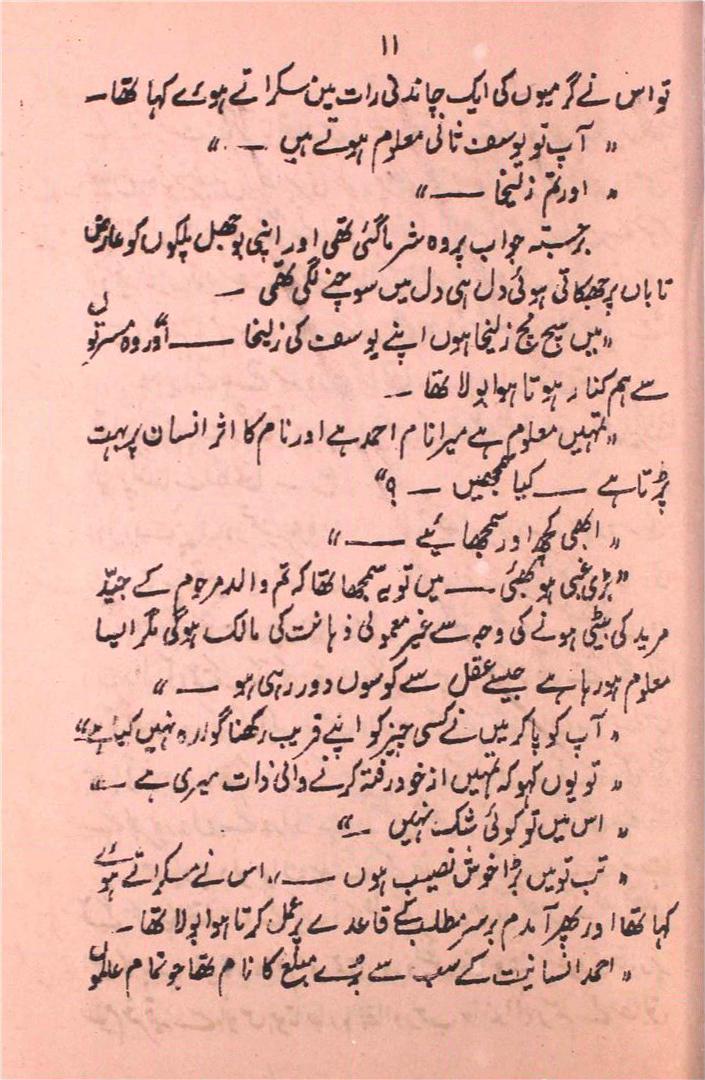 ۱۱
تو اس نے گرمیوں کی ایک چاندنی رات میں مسکراتے ہوئے کہا تھا۔
" آپ تو یوسف ثانی معلوم ہوتے ہیں ۔ "
" اور تم زلیخا ـــــ "
برجستہ جواب پر وہ شرما گئی تھی اور اپنی بوجھل پلکوں کو عارض
تاباں پر جھکاتی ہوئی دل ہی دل میں سوچنے لگی تھی ۔
" میں سچ مچ زلیخا ہوں اپنے یوسف کی زلیخا ـــــ اور وہ مسرتوں
سے ہم کنار ہوتا ہوا بولا تھا ۔
" تمہیں معلوم ہے میرا نام احمد ہے اور نام کا اثر انسان پر بہت
پڑتا ہے ـــ کیا سمجھیں ـ ؟ "
" ابھی کچھ اور سمجھایئے ـــــ "
" بڑی غبی ہو بھئی ـــــ میں تو یہ سمجھا تھا کہ تم والد مرحوم کے جیّد
مرید کی بیٹی ہونے کی وجہ سے غیر معمولی ذہانت کی مالک ہوگی مگر ایسا
معلوم ہو رہا ہے جیسے عقل سے کوسوں دور رہی ہو ـــ "
" آپ کو پا کر میں نے کسی چیز کو اپنے قریب رکھنا گوارہ نہیں کیا ہے "
" تو یوں کہو کہ تمہیں از خود رفتہ کرنے والی ذات میری ہے ـــ "
" اس میں تو کوئی شک نہیں ـ "
" تب تو میں بڑا خوش نصیب ہوں ـــ " اس نے مسکراتے ہوئے
کہا تھا اور پھر آمدم برسر مطلب کے قاعدے پر عمل کرتا ہوا بولا تھا ۔
" احمد انسانیت کے سب سے بڑے مبلغ کا نام تھا جو تمام عالموں